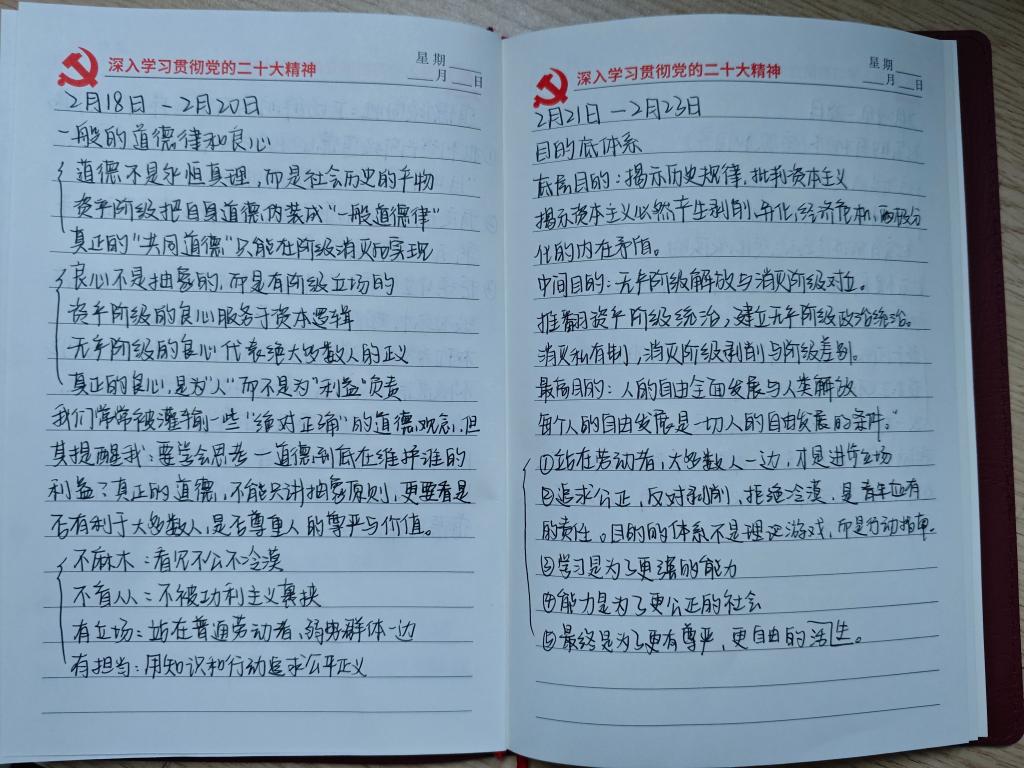 深入学习贯彻党的二十大精神
星期
月 日
2月18日 — 2月20日
一般的道德律和良心
道德不是永恒真理,而是社会历史的产物
资产阶级把自身道德伪装成“一般道德律”
真正的“共同道德”只能在阶级消灭后实现
良心不是抽象的,而是有阶级立场的
资产阶级的良心服务于资本逻辑
无产阶级的良心代表绝大多数人的正义
真正的良心,是为“人”而不是为“利益”负责
我们常常被灌输一些“绝对正确”的道德观念,但
其提醒我:要学会思考一道德到底在维护谁的
利益?真正的道德,不能只讲抽象原则,更要看是
否有利于大多数人,是否尊重人的尊严与价值。
不麻木:看见不公不冷漠
不盲从:不被功利主义裹挟
有立场:站在普通劳动者,弱势群体一边
有担当:用知识和行动追求公平正义
深入学习贯彻党的二十大精神
星期
月 日
2月21日 — 2月23日
目的底体系
底层目的:揭示历史规律,批判资本主义
揭示资本主义必然产生剥削,异化,经济危机,两极分
化的内在矛盾。
中间目的:无产阶级解放与消灭阶级对立。
推翻资产阶级统治,建立无产阶级政治统治。
消灭私有制,消灭阶级剥削与阶级差别。
最高目的:人的自由全面发展与人类解放
每个人的自由发展是一切人的自由发展的条件。”
①站在劳动者,大多数人一边,才是进步立场
②追求公正,反对剥削,拒绝冷漠,是青年应有
的责任。目的的体系不是理论游戏,而是行动指南.
③学习是为了更强的能力
④能力是为了更公正的社会
⑤最终是为了更有尊严,更自由的活生。